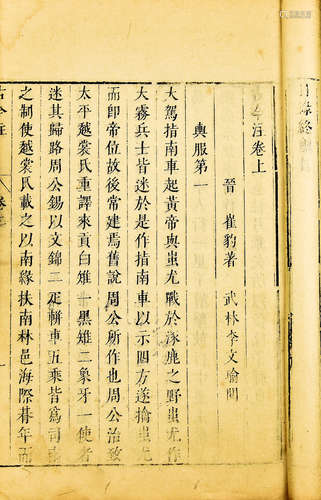 今注卷上
晉 崔豹著 武林李文
輿服第一
大駕指南車起黃帝與蚩尤戰於涿鹿之野蚩尤作
大霧兵士皆迷於是作指南車以示四方遂擒蚩尤
而即帝位故後常建焉舊說周公所作也周公治致
太平越裳氏重譯來貢白雉一黑雉二象牙一使者
迷其歸路周公錫以文錦二疋軿車五乘皆爲司南
之制使越裳氏載之以南緣扶南林邑海際朞年而
古今注